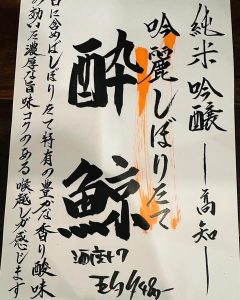 純米吟醸―高知―
吟麗しぼりたて
酔鯨
口に含めばしぼりたて特有の豊かな香り酸味
の効いた濃厚な旨味コクのある喉越しが感じます